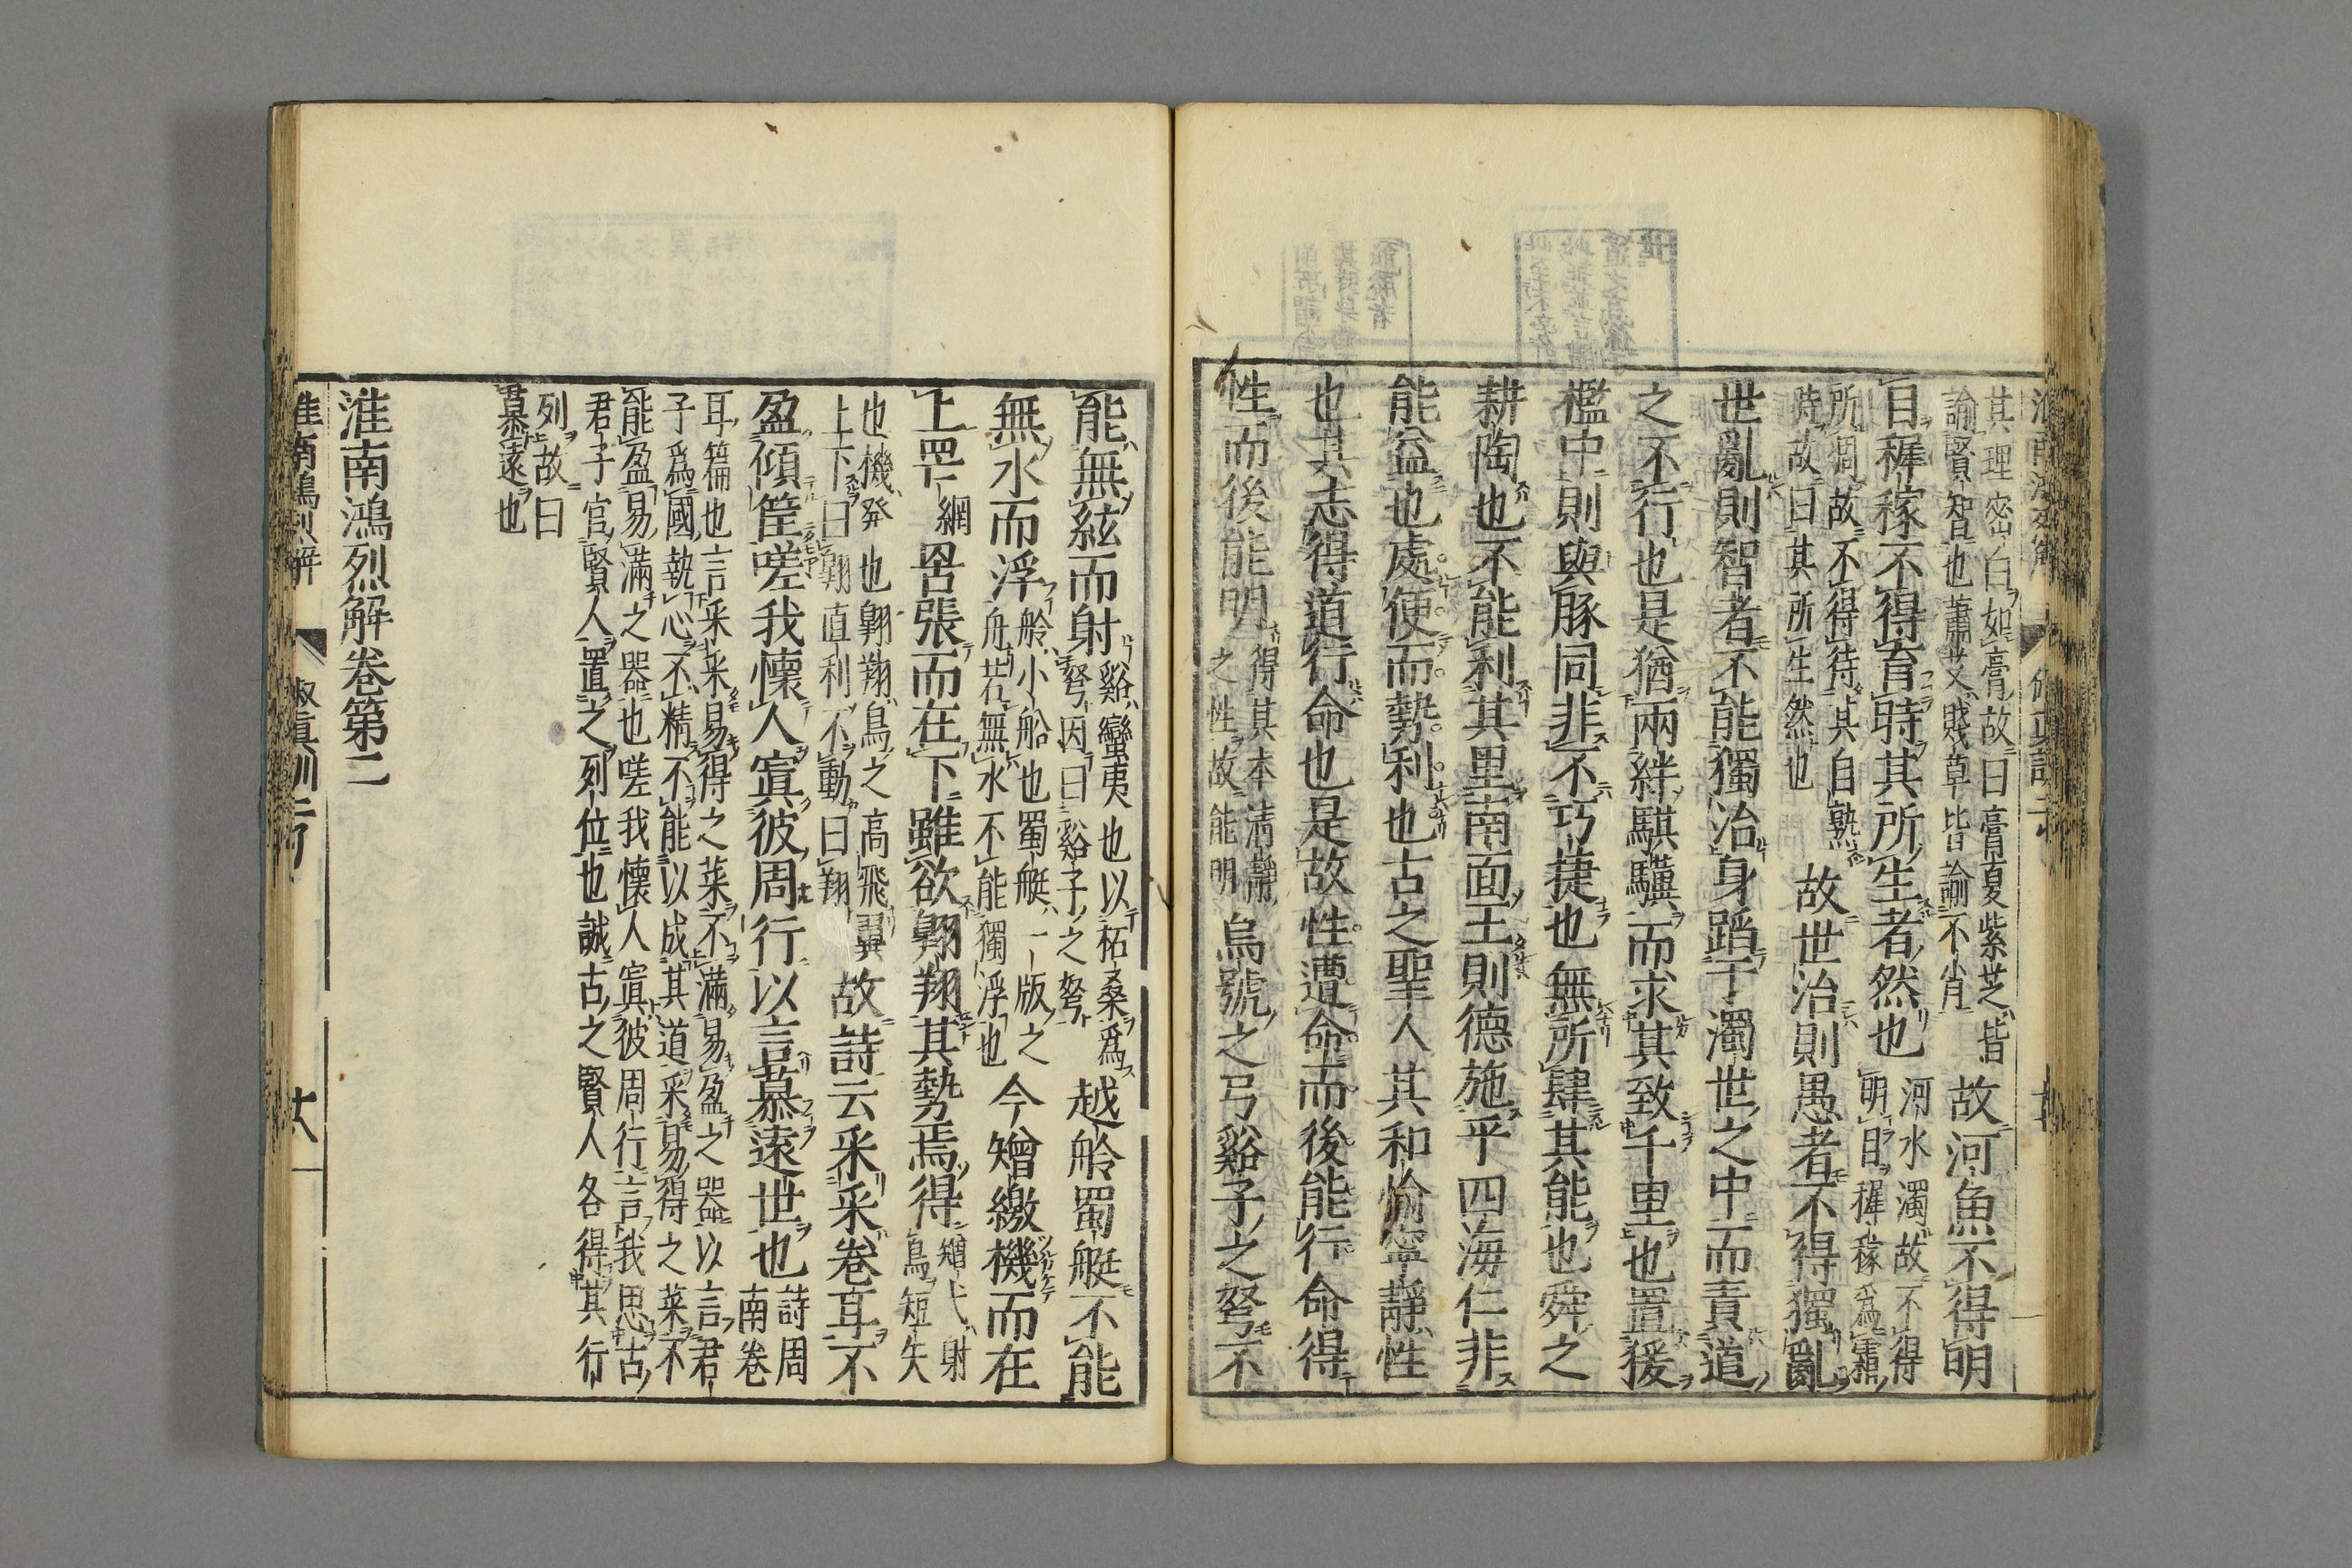 其理密白如膏故曰膏夏紫芝皆
諭賢智也蕭艾賤草皆諭不肖
故河魚不得明
目穉稼不得育時其所生者然也
河水濁故不得
明目穉稼爲霜
所凋故不得待其自熟
時故曰其所生然也
故世治則愚者不得獨亂
世亂則智者不能獨治身蹈于濁世之中而責道
之不行也是猶兩絆騏驥而求其致千里也置猨
檻中則與豚同非不巧捷也無所肆其能也舜之
耕陶也不能利其里南面王則德施乎四海仁非
能益也處便而勢利也古之聖人其和愉寧靜性
也其志得道行命也是故性遭命而後能行命得
性而後能明
得其本清靜
之性故能明
烏號之弓谿子之弩不
能無絃而射
谿蠻夷也以柘桑爲
弩因曰谿子之弩
越舲蜀艇不能
無水而浮
舲小船也蜀艇一版之
舟若無水不能獨浮也
今矰繳機而在
上罟
網
罟張而在下雖欲翺翔其勢焉得
矰弋射
鳥短矢
也機發也翺翔鳥之高飛翼
上下曰翺直利不動曰翔
故詩云采采卷耳不
盈傾筐嗟我懷人寘彼周行以言慕遠世也
詩周
南卷
耳篇也言采采易得之菜不滿易盈之器以言君
子爲國執心不精不能以成其道采易得之菜不
能盈易滿之器也嗟我懷人寘彼周行言我思古
君子官賢人置之列位也誠古之賢人各得其行
列故曰
慕遠也
淮南鴻烈解卷第二